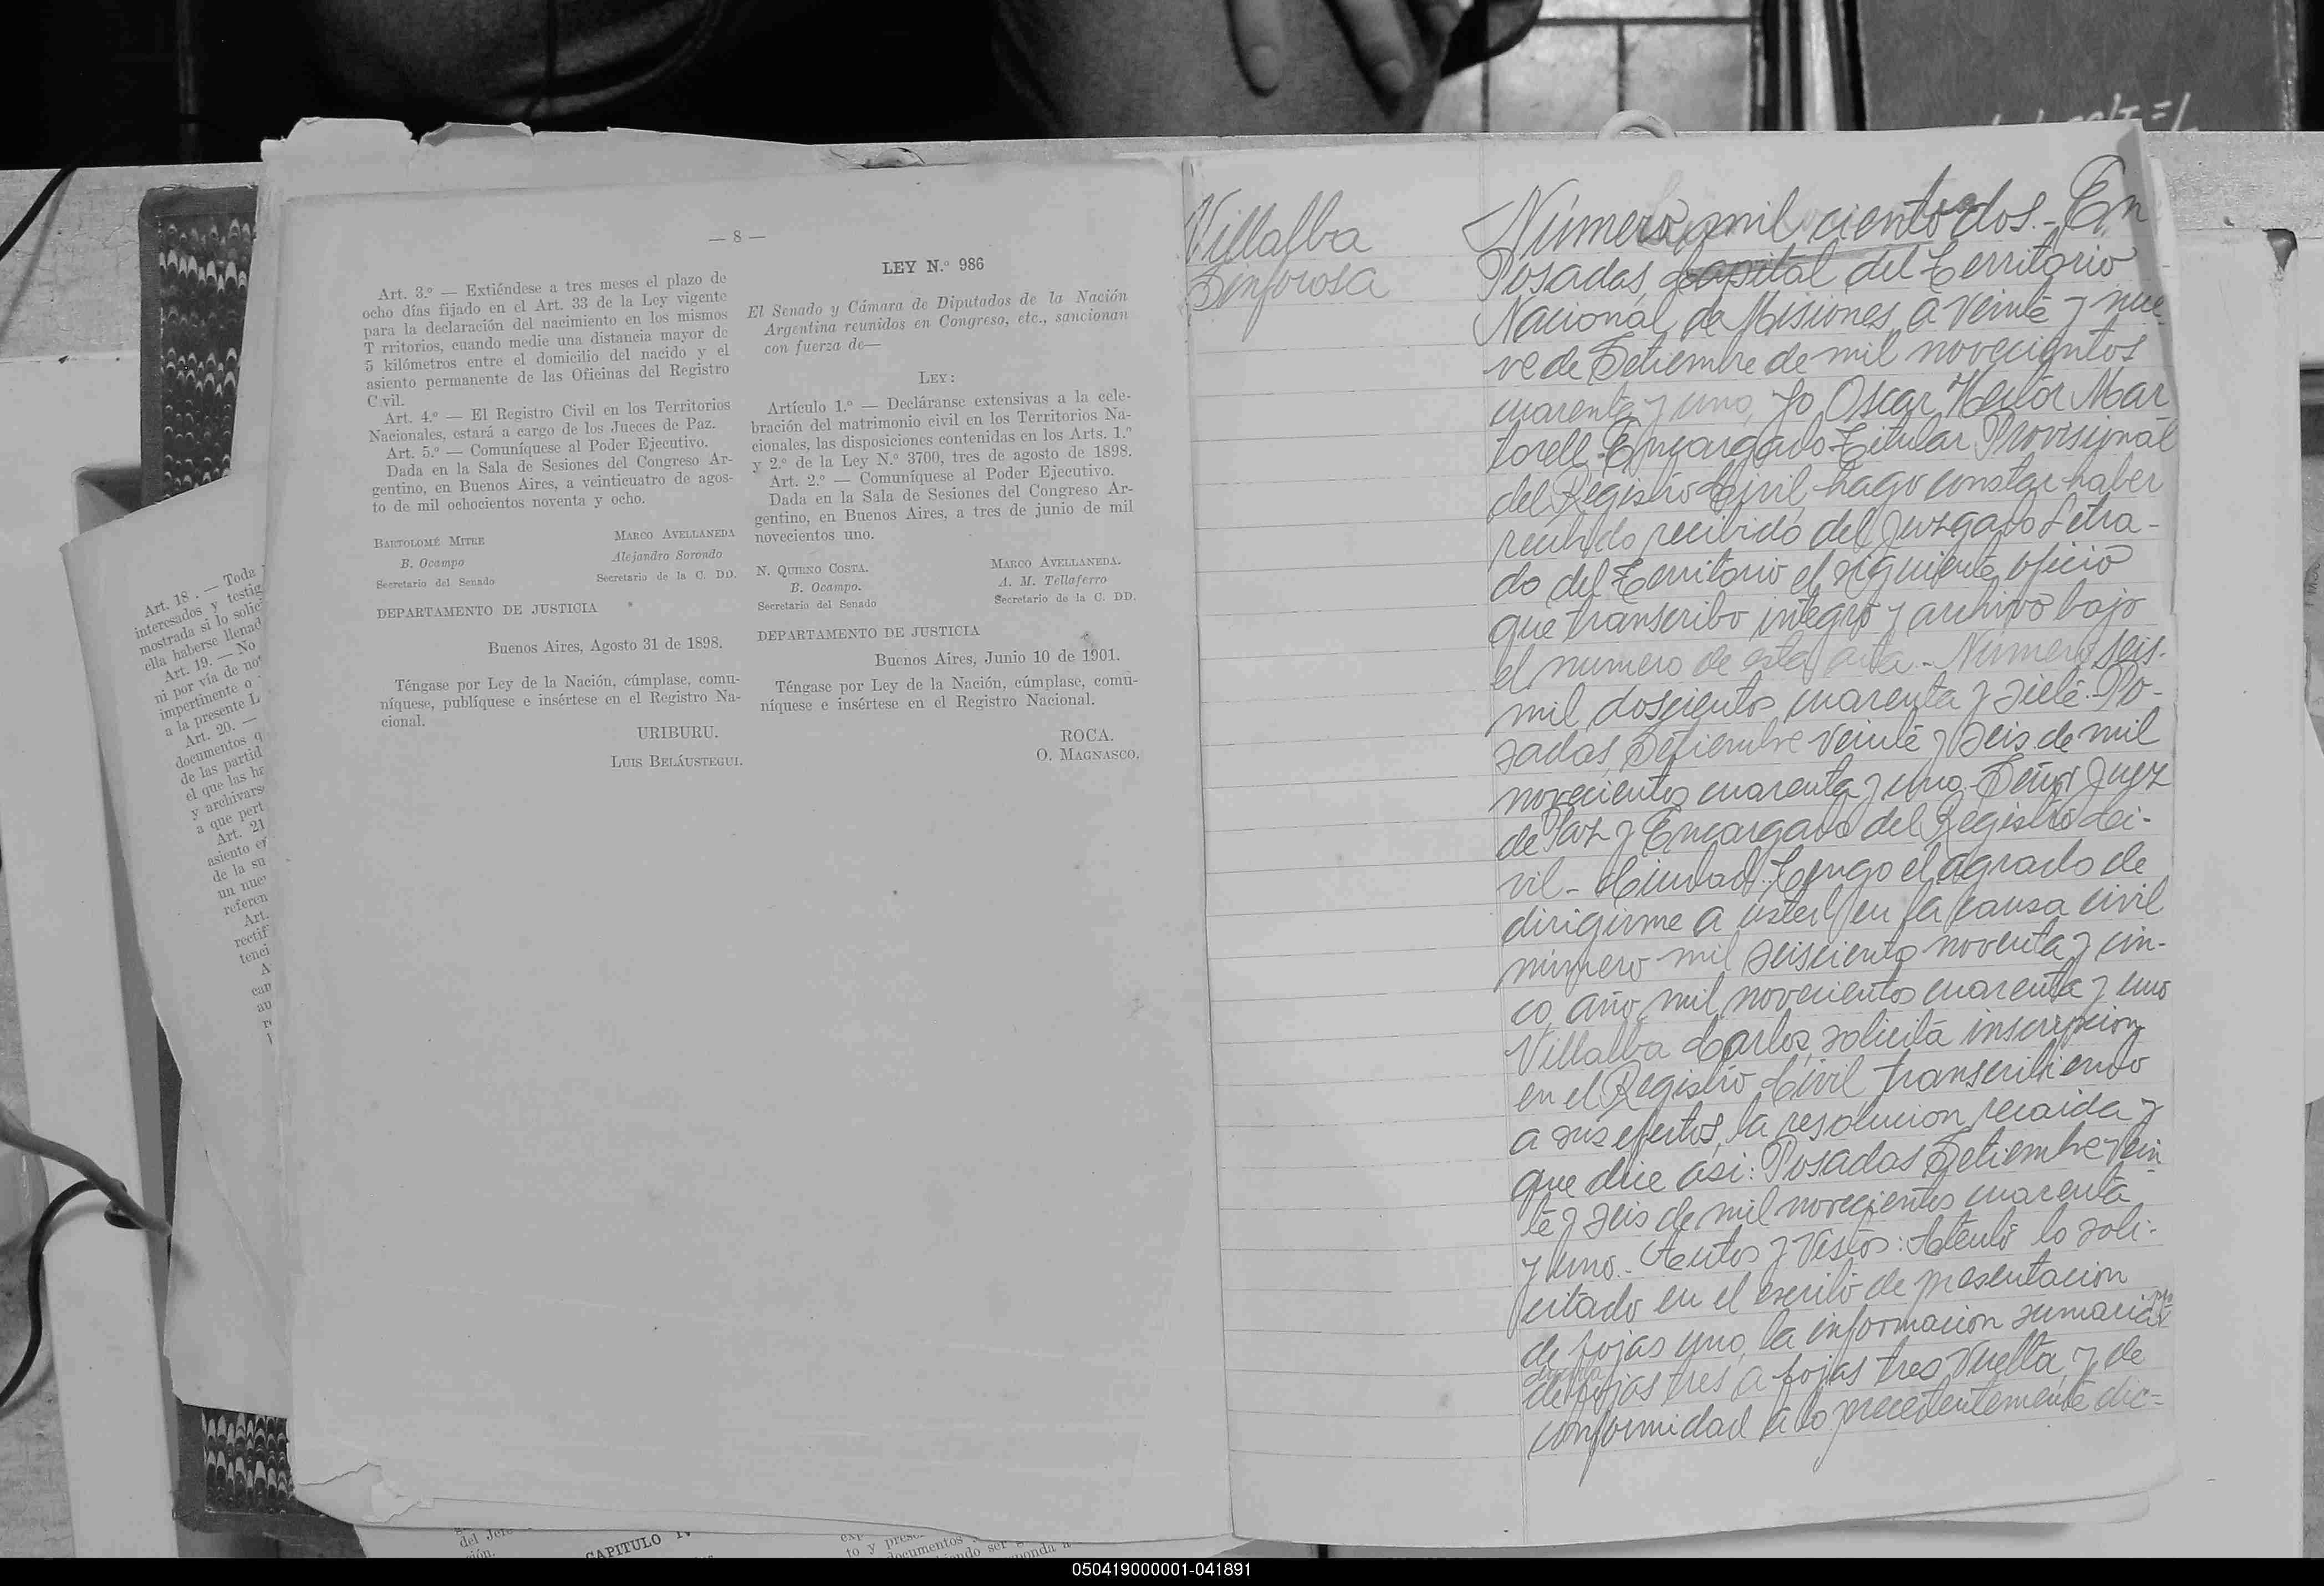 — 8 —
Art. 3.º — Extiéndese a tres meses el plazo de
ocho días fijado en el Art. 33 de la Ley vigente
para la declaración del nacimiento en los mismos
T rritorios, cuando medie una distancia mayor de
5 kilómetros entre el domicilio del nacido y el
asiento permanente de las Oficinas del Registro
C vil.
Art. 4.º — El Registro Civil en los Territorios
Nacionales, estará a cargo de los Jueces de Paz.
Art. 5.º — Comuníquese al Poder Ejecutivo.
Dada en la Sala de Sesiones del Congreso Ar-
gentino, en Buenos Aires, a veinticuatro de agos-
to de mil ochocientos noventa y ocho.
BARTOLOMÉ MITRE MARCO AVELLANEDA
B. Ocampo Alejandro Sorondo
Secretario del Senado Secretario de la C. DD.
DEPARTAMENTO DE JUSTICIA
Buenos Aires, Agosto 31 de 1898.
Téngase por Ley de la Nación, cúmplase, comu-
níquese, publíquese e insértese en el Registro Na-
cional.
URIBURU.
LUIS BELÁUSTEGUI.
LEY N.º 986
El Senado y Cámara de Diputados de la Nación
Argentina reunidos en Congreso, etc., sancionan
con fuerza de—
LEY:
Artículo 1.º — Decláranse extensivas a la cele-
bración del matrimonio civil en los Territorios Na-
cionales, las disposiciones contenidas en los Arts. 1.º
y 2.º de la Ley N.º 3700, tres de agosto de 1898.
Art. 2.º — Comuníquese al Poder Ejecutivo.
Dada en la Sala de Sesiones del Congreso Ar-
gentino, en Buenos Aires, a tres de junio de mil
novecientos uno.
N. QUIRNO COSTA. MARCO AVELLANEDA.
B. Ocampo. A. M. Tellaferro
Secretario del Senado Secretario de la C. DD.
DEPARTAMENTO DE JUSTICIA
Buenos Aires, Junio 10 de 1901.
Téngase por Ley de la Nación, cúmplase, comu-
níquese e insértese en el Registro Nacional.
ROCA.
O. MAGNASCO.
Art. 18 . — Toda
interesados y testig
mostrada si lo solic
ella haberse llenad
Art. 19. — No
ni por vía de no
impertinente o
a la presente L
Art. 20. —
documentos q
de las partid
el que las
y archivars
a que pert
Art. 21
asiento
de la su
un nue
referen
Art.
rectif
tenci
CAPITULO
Villalba
Sinforosa
Número mil ciento dos.- En
Posadas, Capital del Territorio
Nacional de Misiones, a veinte y nue-
ve de Setiembre de mil novecientos
cuarenta y uno, Yo Oscar Hector Mar
torell Encargado Titular Provisional
del Registro Civil, hago constar haber
recibido recibido del Juzgado Letra-
do del Territorio el siguiente oficio
que transcribo integro y archivo bajo
el numero de esta acta.- Número seis-
mil doscientos cuarenta y siete.- Po-
sadas, Setiembre veinte y seis de mil
novecientos cuarenta y uno.- Señor Juez
de Paz y Encargado del Registro Ci-
vil - Ciudad. Tengo el agrado de
dirigirme a usted en la causa civil
número mil seiscientos noventa y cin-
co, año mil novecientos cuarenta y uno
Villalba Carlos, solicita inscripcion
en el Registro Civil, transcribiendo
a sus efectos, la resolucion recaida y
que dice asi: Posadas Setiembre vein
te y seis de mil novecientos cuarenta
y uno.- Autos y Vistos: Atento lo soli-
citado en el escrito de presentacion
de fojas uno, la informacion sumaria
de fojas tres a fojas tres vuelta, y de
conformidad a lo precedentemente dic-
050419000001-041891